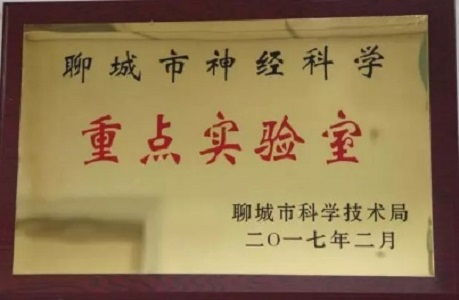 聊城市神经科学
重点实验室
聊城市科学技术局
二〇一七年二月